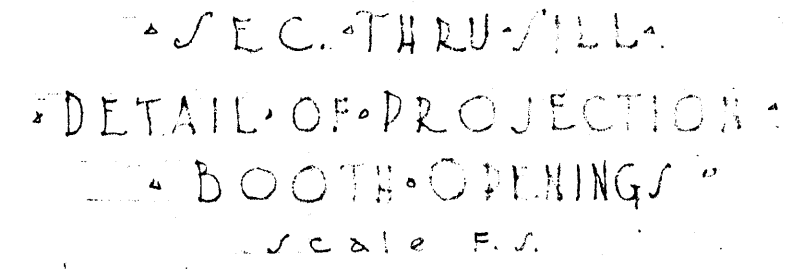 SEC. THRU SILL
DETAIL OF PROJECTION
BOOTH OPENINGS
scale F.S.